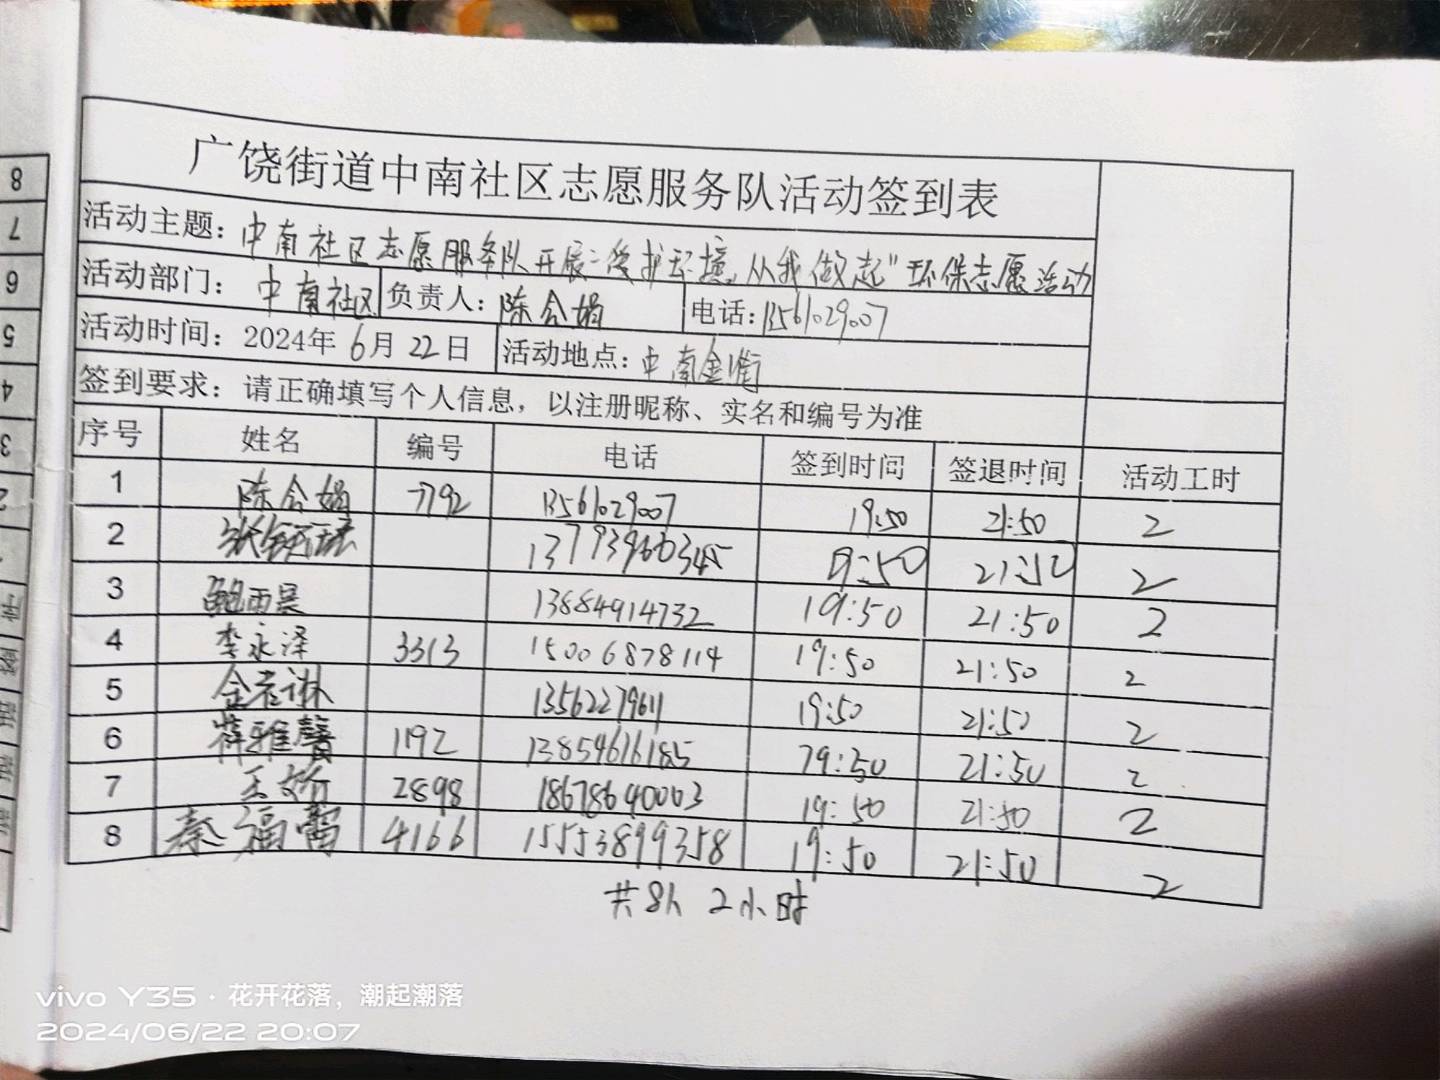 广饶街道中南社区志愿服务队活动签到表
活动主题：中南社区志愿服务队开展"爱护环境，从我做起"环保志愿活动
活动部门：中南社区 负责人：陈会娟 电话：13561029007
活动时间：2024年6月22日 活动地点：中南金街
签到要求：请正确填写个人信息，以注册昵称、实名和编号为准
序号 姓名 编号 电话 签到时间 签退时间 活动工时
1 陈会娟 7792 13561029007 19:50 21:50 2
2 13793966345 19:50 21:50 2
3 鲍雨昊 13884914732 19:50 21:50 2
4 李永泽 3313 15006878114 19:50 21:50 2
5 金若琳 13562279611 19:50 21:50 2
6 蒋雅馨 1192 13854616185 19:50 21:50 2
7 王娇 2898 18678640003 19:50 21:50 2
8 秦福蕾 4166 15553899358 19:50 21:50 2
共8人 2小时
8
7
6
5
4
3
2
vivo Y35 · 花开花落，潮起潮落
2024/06/22 20:07